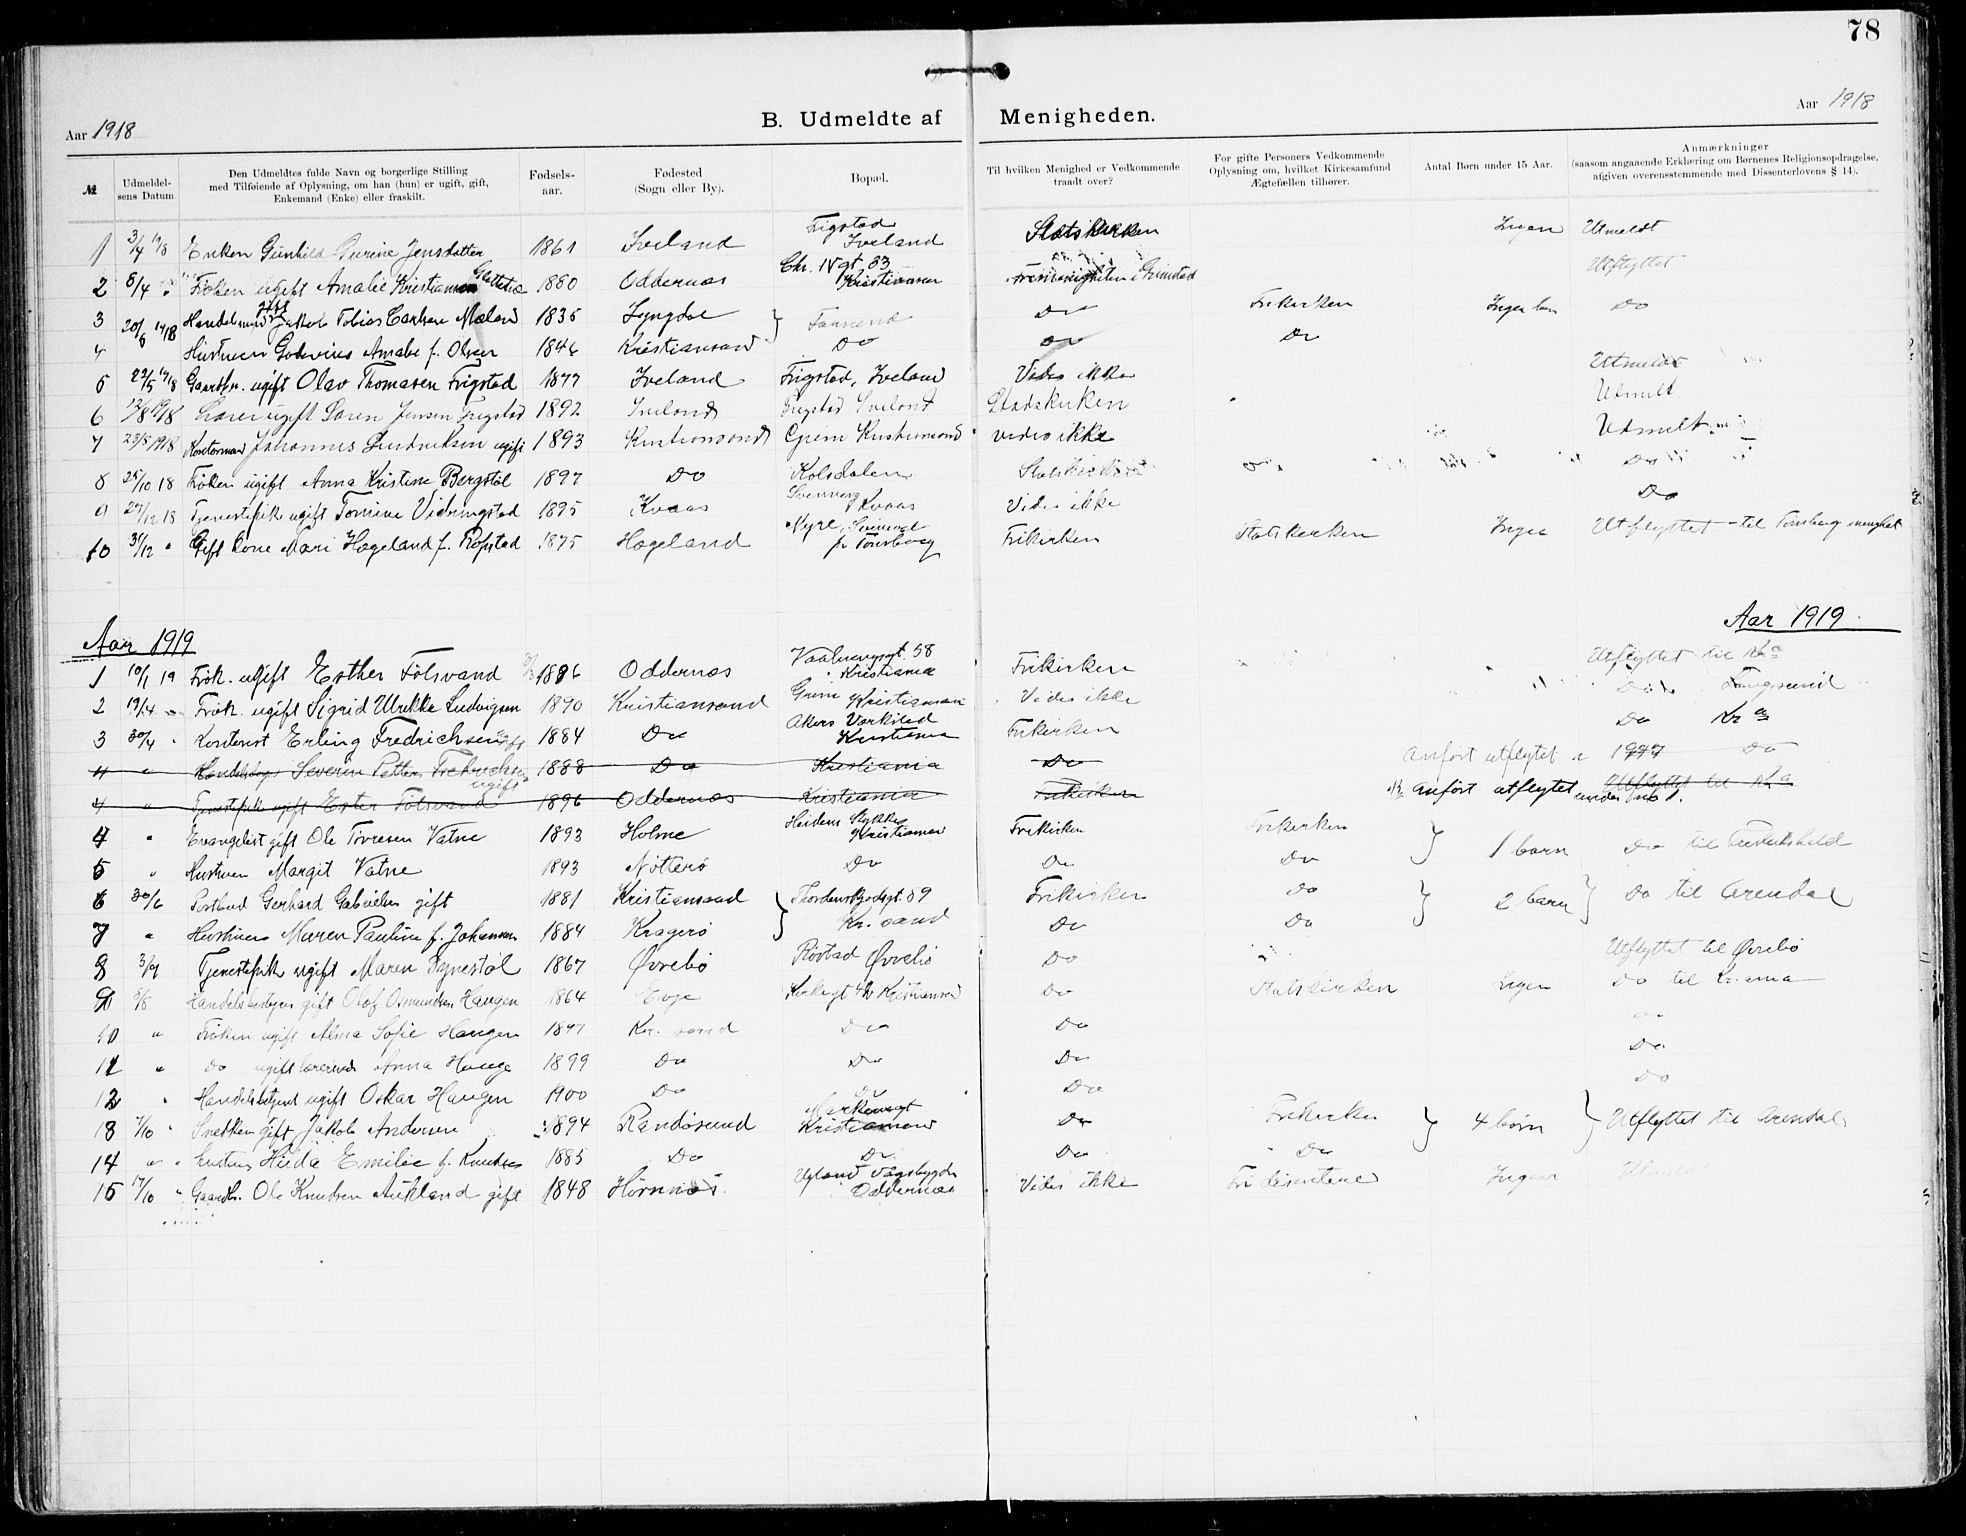 78
Aar 1918
B. Udmeldte af Menigheden.
Aar 1918
№
Udmeldelsens Datum
Den Udmeldtes fulde Navn og borgerlige Stilling
med Tilføiende af Oplysning, om han (hun) er ugift, gift,
Enkemand (Enke) eller fraskilt.
Fødselsaar.
Fødested
(Sogn eller By).
Bopæl.
Til hvilken Menighed er Vedkommende
traadt over?
For gifte Personers Vedkommende
Oplysning om, hvilket Kirkesamfund
Ægtefællen tilhører.
Antal Børn under 15 Aar.
Anmærkninger
(saasom angaaende Erklæring om Børnenes Religionsopdragelse,
afgiven overensstemmende med Dissenterlovens § 14).
1 3/4 1918 Enken Gunhild Gurine Jensdatter 1861 Iveland Frigstad Iveland Statskirken Ingen Utmeldt
2 8/4 " Frøken ugift Amalie Kristiansen 1880 Oddernæs Chr. IV gt 83 Kristiansan Frimenigheten i Grimstad Utflyttet
3 20/6 1918 gift Jakob Tobias Carlsen Mæland 1835 Lyngdal Farsund Do Frikirken Ingen barn Do
4 Hustruen Amalie f. Olsen 1846 Kristiansand Do Do Do
5 29/5 1918 Gaardbr. ugift Olav Thomasen Frigstad 1877 Iveland Frigstad, Iveland Vides ikke Utmeldt
6 12/8 1918 Lærer ugift Søren Jensen Frigstad 1892 Iveland Frigstad Iveland Statskirken Utmelt
7 23/8 1918 Kontormand Johannes Fredriksen ugift 1893 Kristiansand Grim Kristiansand vides ikke Utmelt
8 25/10 18 Frøken ugift Anna Kristine Bergstøl 1897 Do Kolsdalen Statskirken Do
9 27/12 18 Tjenestepike ugift Tomine Vidringstad 1895 Kvaas Kvaas Vides ikke Do
10 31/12 " Gift kone Mari Hægeland f. Røpstad 1875 Hægeland pr Tønsberg Frikirken Statskirken Ingen Utflyttet - til Tønsberg menighet
Aar 1919
Aar 1919
1 10/1 19 Frøk. ugift Esther Følsvand 1896 Oddernæs Vaalerenggt. 58 Kristiania Frikirken Utflyttet til Kra
2 19/4 " Frøk. ugift Sigrid Ulrikke Ludvigsen 1890 Kristiansand Grim Kristiansan Vides ikke Do Langesund
3 30/4 " Kontorist Erling Fredrichsen ugift 1884 Do Akers Værksted Kristiania Frikirken Do Kra
4 " Severin Petter Fredrichsen ugift 1888 Do Kristiania Do Anført utflytet 1917 Do
4 " Tjenestepike ugift Ester Følsvand 1896 Oddernæs Kristiania Frikirken Anført utflytet under No 1. Utflyttet til Kra
4 " Evangelist gift Ole Torresen Vatne 1893 Holme Kristiansan Frikirken Frikirken 1 barn Do til Fredrikshald
5 " Hustruen Margit Vatne 1893 Nøtterø Do Do Do
6 30/6 Postbud Gerhard Gabrielsen gift 1881 Kristiansand Tordenskjoldsgt. 59 Frikirken Do 2 barn Do til Arendal
7 " Hustruen Maren Pauline f. Johansen 1884 Kragerø Kr. sand Do Do
8 3/7 Tjenestepike ugift Maren Bynestøl 1867 Øvrebø Røstad Øvrebø Do Utflyttet til Øvrebø
9 8/8 Handelsbestyrer gift Olof Osmundsen Haugen 1864 Evje Kirkegt Kristiansan Do Statskirken Ingen Do til Kr.ania
10 " Frøken ugift Alma Sofie Haugen 1897 Kr. sand Do Do
11 " Do ugift lærerinde Anna Hauge 1899 Do Do Do Do
12 " Handelsbetjent ugift Oskar Haugen 1900 Do Do Do Do
13 7/10 " Snekker gift Jakob Andersen 1894 Randøsund Markensgt Kristiansan Do Frikirken 4 børn Utflyttet til Arendal
14 " " hustru Hilda Emilie f. Knudsen 1885 Do Do Do Do
15 17/10 " Gaardbr. Ole Knutsen Aukland gift 1848 Hornnæs Upland Vågsbygd Oddernæs Vides ikke Fri disentere Ingen Utmeldt